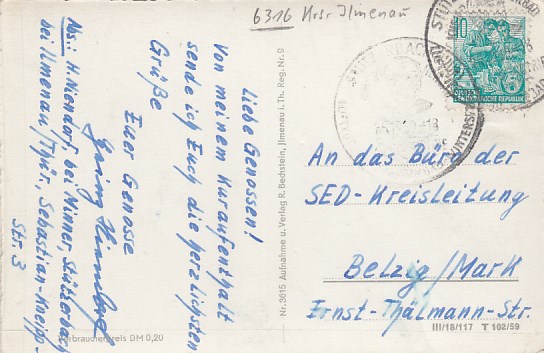 6316 Krs. Ilmenau
Liebe Genossen!
Von meinem Kuraufenthalt
sende ich Euch die herzlichsten
Grüße
Euer Genosse
Georg
Abs.: H. Niendorf, bei Ninner, Stützerbach
bei Ilmenau/Thür., Sebastian-Kneipp-
Str. 3
Verbraucherpreis DM 0,20
Nr. 3615 Aufnahme u. Verlag R. Bechstein, Ilmenau i. Th. Reg. Nr. 9
10
DEUTSCHE
DEMOKRATISCHE REPUBLIK
An das Büro der
SED-Kreisleitung
Belzig/Mark
Ernst-Thälmann-Str.
III/18/117 T 102/59